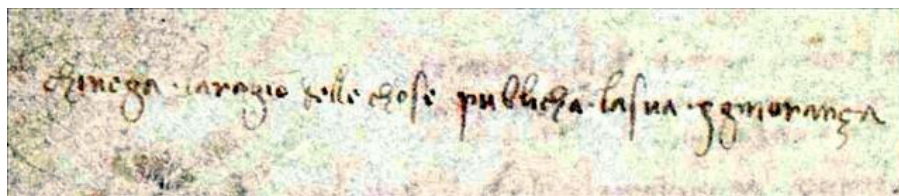 Chinega · laragiō delle chose publicha · lasua · jgniorança